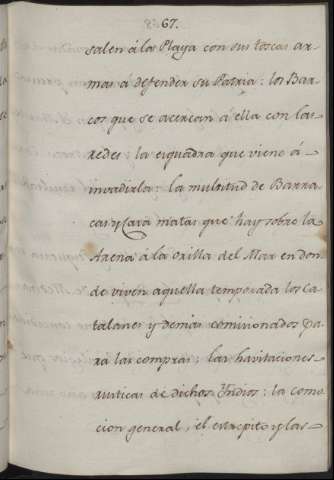 67.
salen á la Playa con sus toscas ar-
mas á defender su Patria: los Bar-
cos que se acercan á ella con las
redes: la esquadra que viene á
invadirla: la multitud de Barra
cas y Cara matas que hay sobre la
Arena á la orilla del Mar en don
de viven aquella temporada los Ca-
talanes y demas comisionados pa-
ra las compras; las havitaciones
rusticas de dichos Yndios: la como
cion general, el estrepito y las